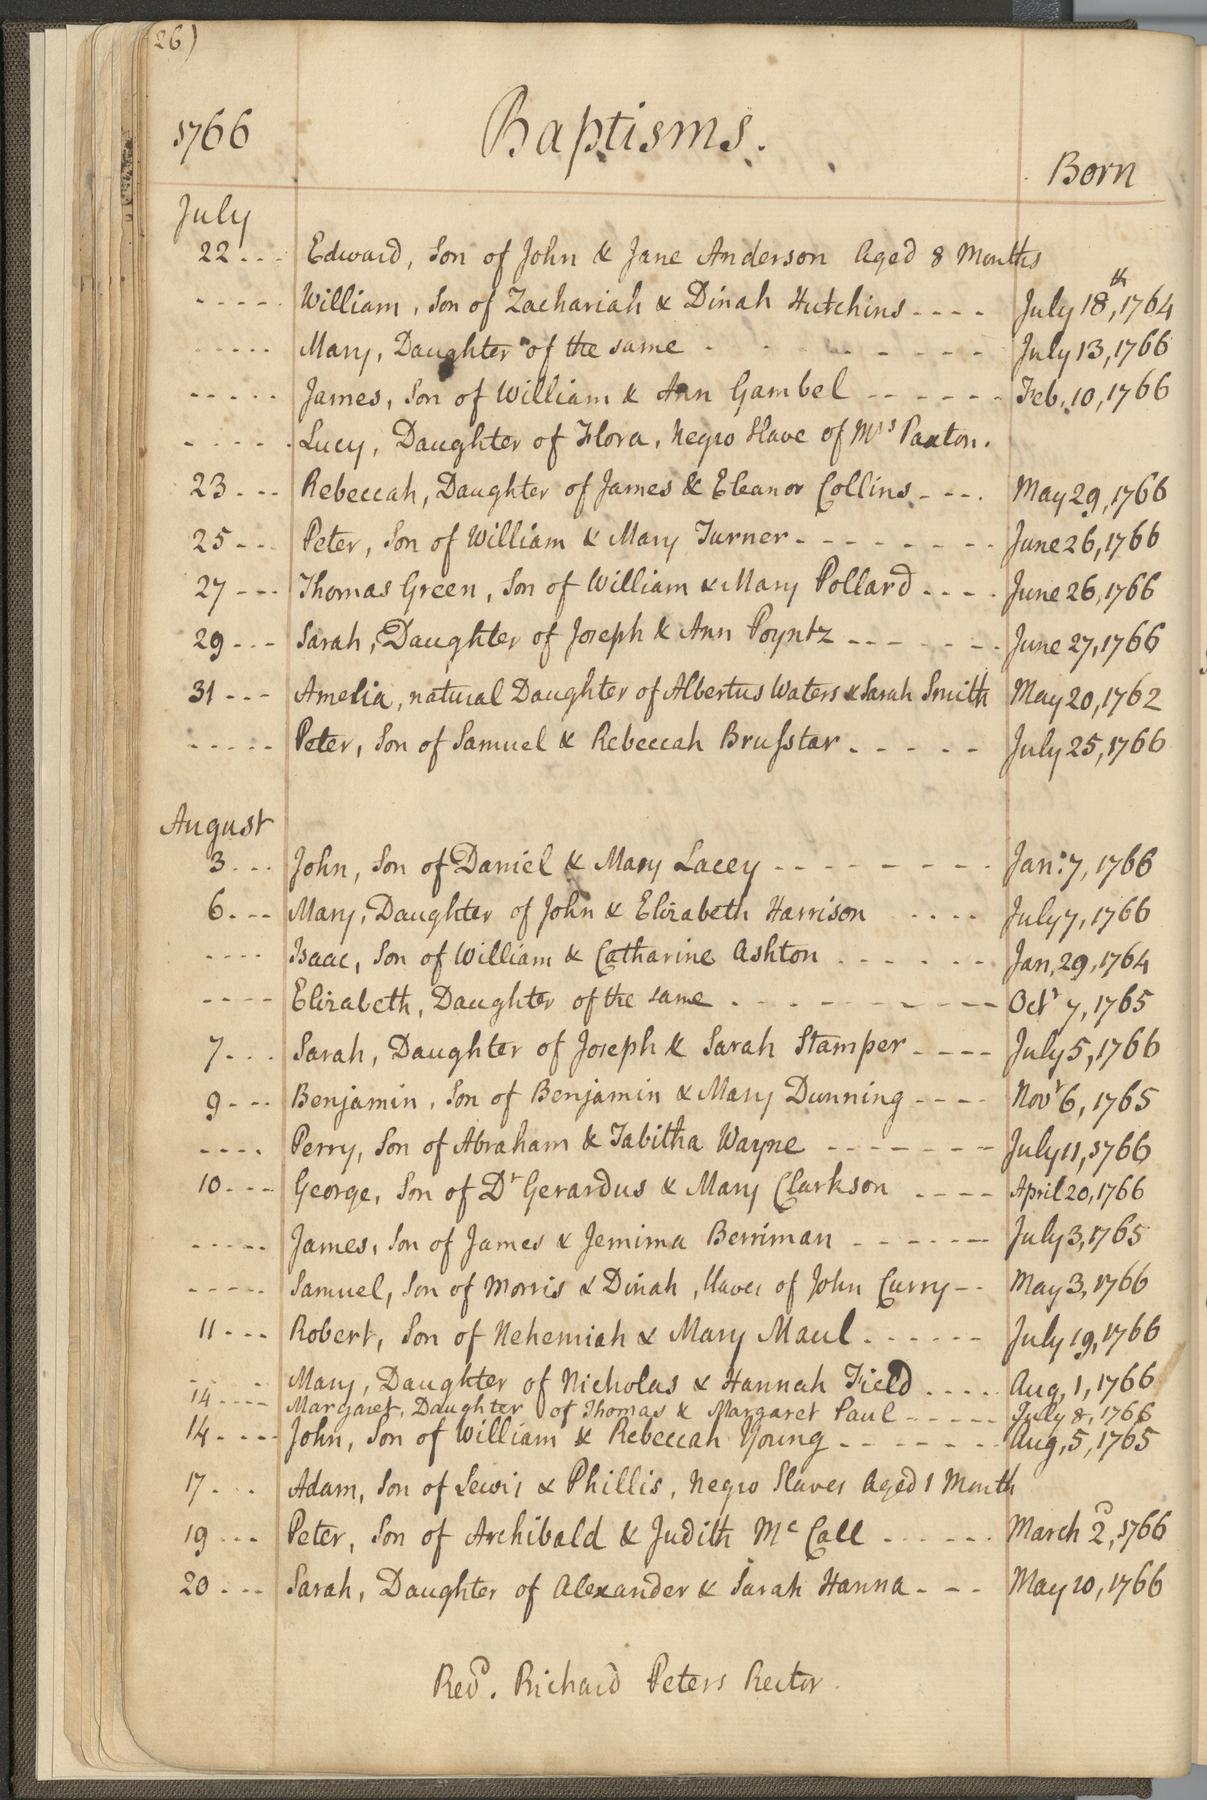 26)
1766 Baptisms. Born
July
22 - - - Edward, Son of John & Jane Anderson Aged 8 Months
- - - - - William, Son of Zachariah & Dinah Hutchins - - - - July 18th, 1764
- - - - - Mary, Daughter of the same - - - - - - - - July 13, 1766
- - - - - James, Son of William & Ann Gambel - - - - - - Feb. 10, 1766
- - - - - Lucy, Daughter of Flora, Negro Slave of Mrs Paxton.
23 - - - Rebeccah, Daughter of James & Eleanor Collins - - - - May 29, 1766
25 - - - Peter, Son of William & Mary Turner - - - - - - - - June 26, 1766
27 - - - Thomas Green, Son of William & Mary Pollard - - - - June 26, 1766
29 - - - Sarah, Daughter of Joseph & Ann Poyntz - - - - - - - June 27, 1766
31 - - - Amelia, natural Daughter of Albertus Waters & Sarah Smith May 20, 1762
- - - - - Peter, Son of Samuel & Rebeccah Bruſstar - - - - - July 25, 1766
August
3 - - - John, Son of Daniel & Mary Lacey - - - - - - - - Jan: 7, 1766
6 - - - Mary, Daughter of John & Elizabeth Harrison - - - - July 7, 1766
- - - - Isaac, Son of William & Catharine Ashton - - - - - - Jan, 29, 1764
- - - - Elizabeth, Daughter of the same - - - - - - - - - Octr 7, 1765
7 - - - Sarah, Daughter of Joseph & Sarah Stamper - - - - July 5, 1766
9 - - - Benjamin, Son of Benjamin & Mary Dunning - - - - Novr 6, 1765
- - - - Perry, Son of Abraham & Tabitha Wayne - - - - - - - July 11, 1766
10 - - - George, Son of Dr Gerardus & Mary Clarkson - - - - April 20, 1766
- - - - - James, Son of James & Jemima Berriman - - - - - - July 3, 1765
- - - - - Samuel, Son of Morris & Dinah, Slaves of John Curry - - May 3, 1766
11 - - - Robert, Son of Nehemiah & Mary Maul - - - - - - July 19, 1766
- - - Mary, Daughter of Nicholas & Hannah Field - - - - - Aug, 1, 1766
14 - - - - Margaret, Daughter of Thomas & Margaret Paul - - - - - July 8, 1766
14 - - - - John, Son of William & Rebeccah Young - - - - - - - Aug, 5, 1765
17 - - - Adam, Son of Lewis & Phillis, Negro Slaves Aged 1 Month
19 - - - Peter, Son of Archibald & Judith Mc Call - - - - - - March 2d, 1766
20 - - - Sarah, Daughter of Alexander & Sarah Hanna - - - May 10, 1766
Revd. Richard Peters Rector.